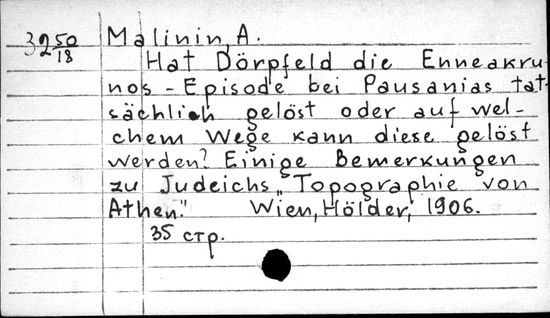 32 50/18 Malinin, A.
Hat Dörpfeld die Enneakru-
nos - Episode bei Pausanias tat-
sächlich gelöst oder auf wel-
chem Wege kann diese gelöst
werden? Einige Bemerkungen
zu Judeichs „Topographie von
Athen." Wien, Hölder, 1906.
35 стр.